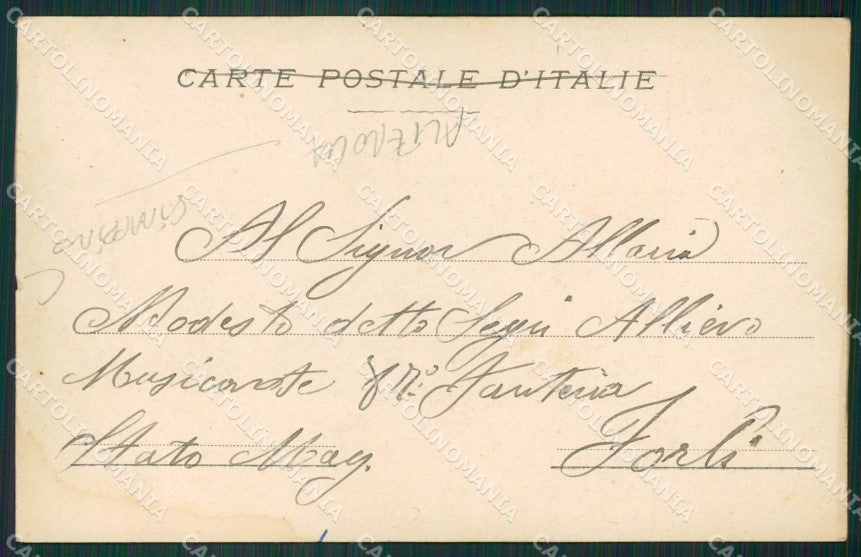 CARTE POSTALE D'ITALIE
Al Signor Allaria
Modesto detto Segui Allievo
Musicante Fanteria
Stato Mag. Forlì
CARTOLINOMANIA